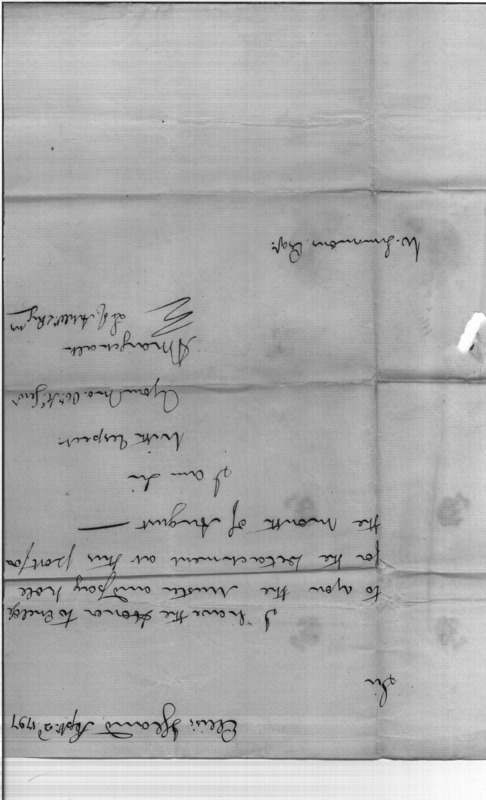 Ellis's Island Sept. 2d 1797
Sir
I have the Honor to Enclose
to you the Muster and pay Role
for the Detachment at this post for
the Month of August —
I am Sir
With Respect
Your Mo. Obt
W. Simmons Esqr.